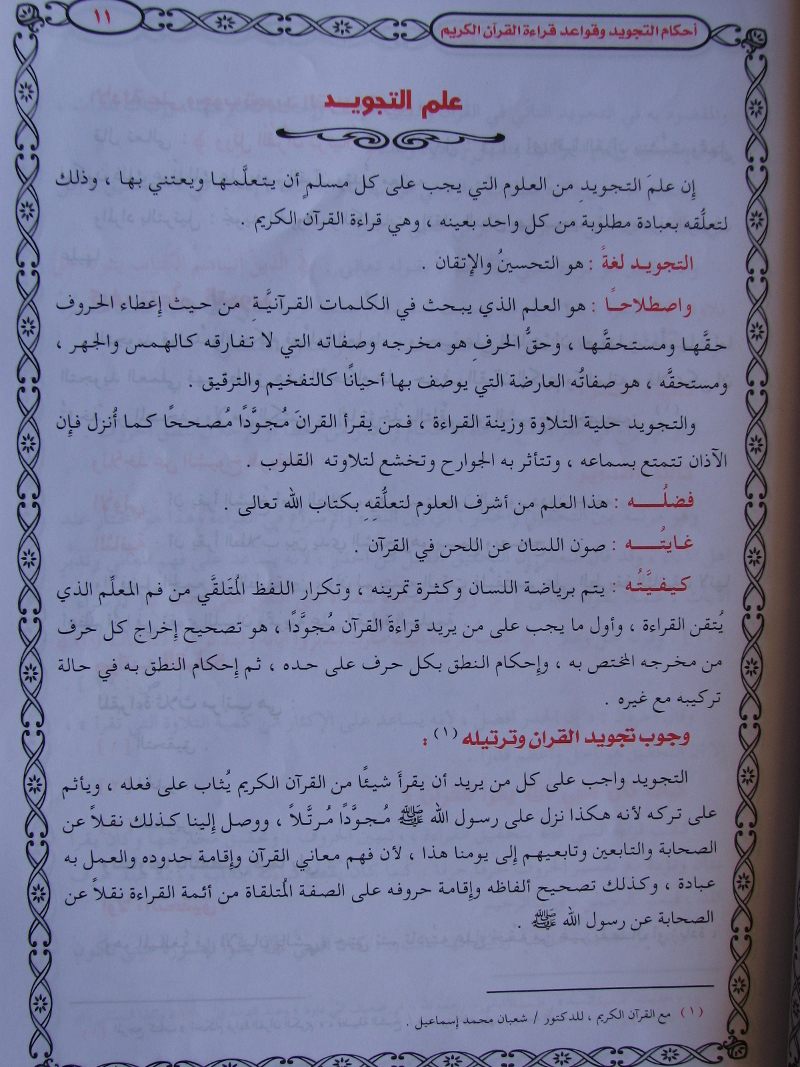 أحكام التجويد وقواعد قراءة القرآن الكريم
١١
علم التجويد
إن علمَ التجويدِ من العلوم التي يجب على كل مسلمٍ أن يتعلَّمها ويعتني بها ، وذلك
لتعلُّقه بعبادة مطلوبة من كل واحد بعينه ، وهي قراءة القرآن الكريم .
التجويد لغةً : هو التحسينُ والإتقان .
واصطلاحًا : هو العلم الذي يبحث في الكلمات القرآنيَّة من حيث إعطاء الحروف
حقَّها ومستحقَّها ، وحقُّ الحرفِ هو مخرجه وصفاته التي لا تفارقه كالهمس والجهر ،
ومستحقَّه ، هو صفاتُه العارضة التي يوصف بها أحيانًا كالتفخيم والترقيق .
والتجويد حلية التلاوة وزينة القراءة ، فمن يقرأ القرانَ مُجوَّدًا مُصححًا كما أُنزل فإن
الآذان تتمتع بسماعه ، وتتأثر به الجوارح وتخشع لتلاوته القلوب .
فضلُـــه : هذا العلم من أشرف العلوم لتعلُّقِهِ بكتاب الله تعالى .
غايتُـــه : صون اللسان عن اللحن في القرآن .
كيفيَّتُه : يتم برياضة اللسان وكثرة تمرينه ، وتكرار اللفظ المُتَلقَّي من فم المعلِّم الذي
يُتقن القراءة ، وأول ما يجب على من يريد قراءةَ القرآن مُجوَّدًا ، هو تصحيح إخراج كل حرف
من مخرجه المختص به ، وإحكام النطق بكل حرف على حده ، ثم إحكام النطق به في حالة
تركيبه مع غيره .
وجوب تجويد القران وترتيله (١) :
التجويد واجب على كل من يريد أن يقرأَ شيئًا من القرآن الكريم يُثاب على فعله ، ويأثم
على تركه لأنه هكذا نزل على رسول الله ﷺ مُجوَّدًا مُرتَّلاً ، ووصل إلينا كذلك نقلاً عن
الصحابة والتابعين وتابعيهم إلى يومنا هذا ، لأن فهم معاني القرآن وإقامة حدوده والعمل به
عبادة ، وكذلك تصحيح ألفاظه وإقامة حروفه على الصفة المُتلقاة من أئمة القراءة نقلاً عن
الصحابة عن رسول الله ﷺ .
(١) مع القرآن الكريم ، للدكتور / شعبان محمد إسماعيل .